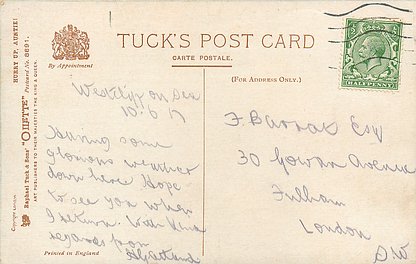 HURRY UP, AUNTIE!
Postcard No. 8691.
Raphael Tuck & Sons' "OILETTE"
ART PUBLISHERS TO THEIR MAJESTIES THE KING & QUEEN.
Copyright
By Appointment
TUCK'S POST CARD
CARTE POSTALE.
(FOR ADDRESS ONLY.)
HALFPENNY
Westcliff on Sea
10.6.17
Having some
glorious weather
down here Hope
to see you when
I return. With kind
regards from
F. Barrat Esq
30 Gowan Avenue
Fulham
London
S.W
Printed in England